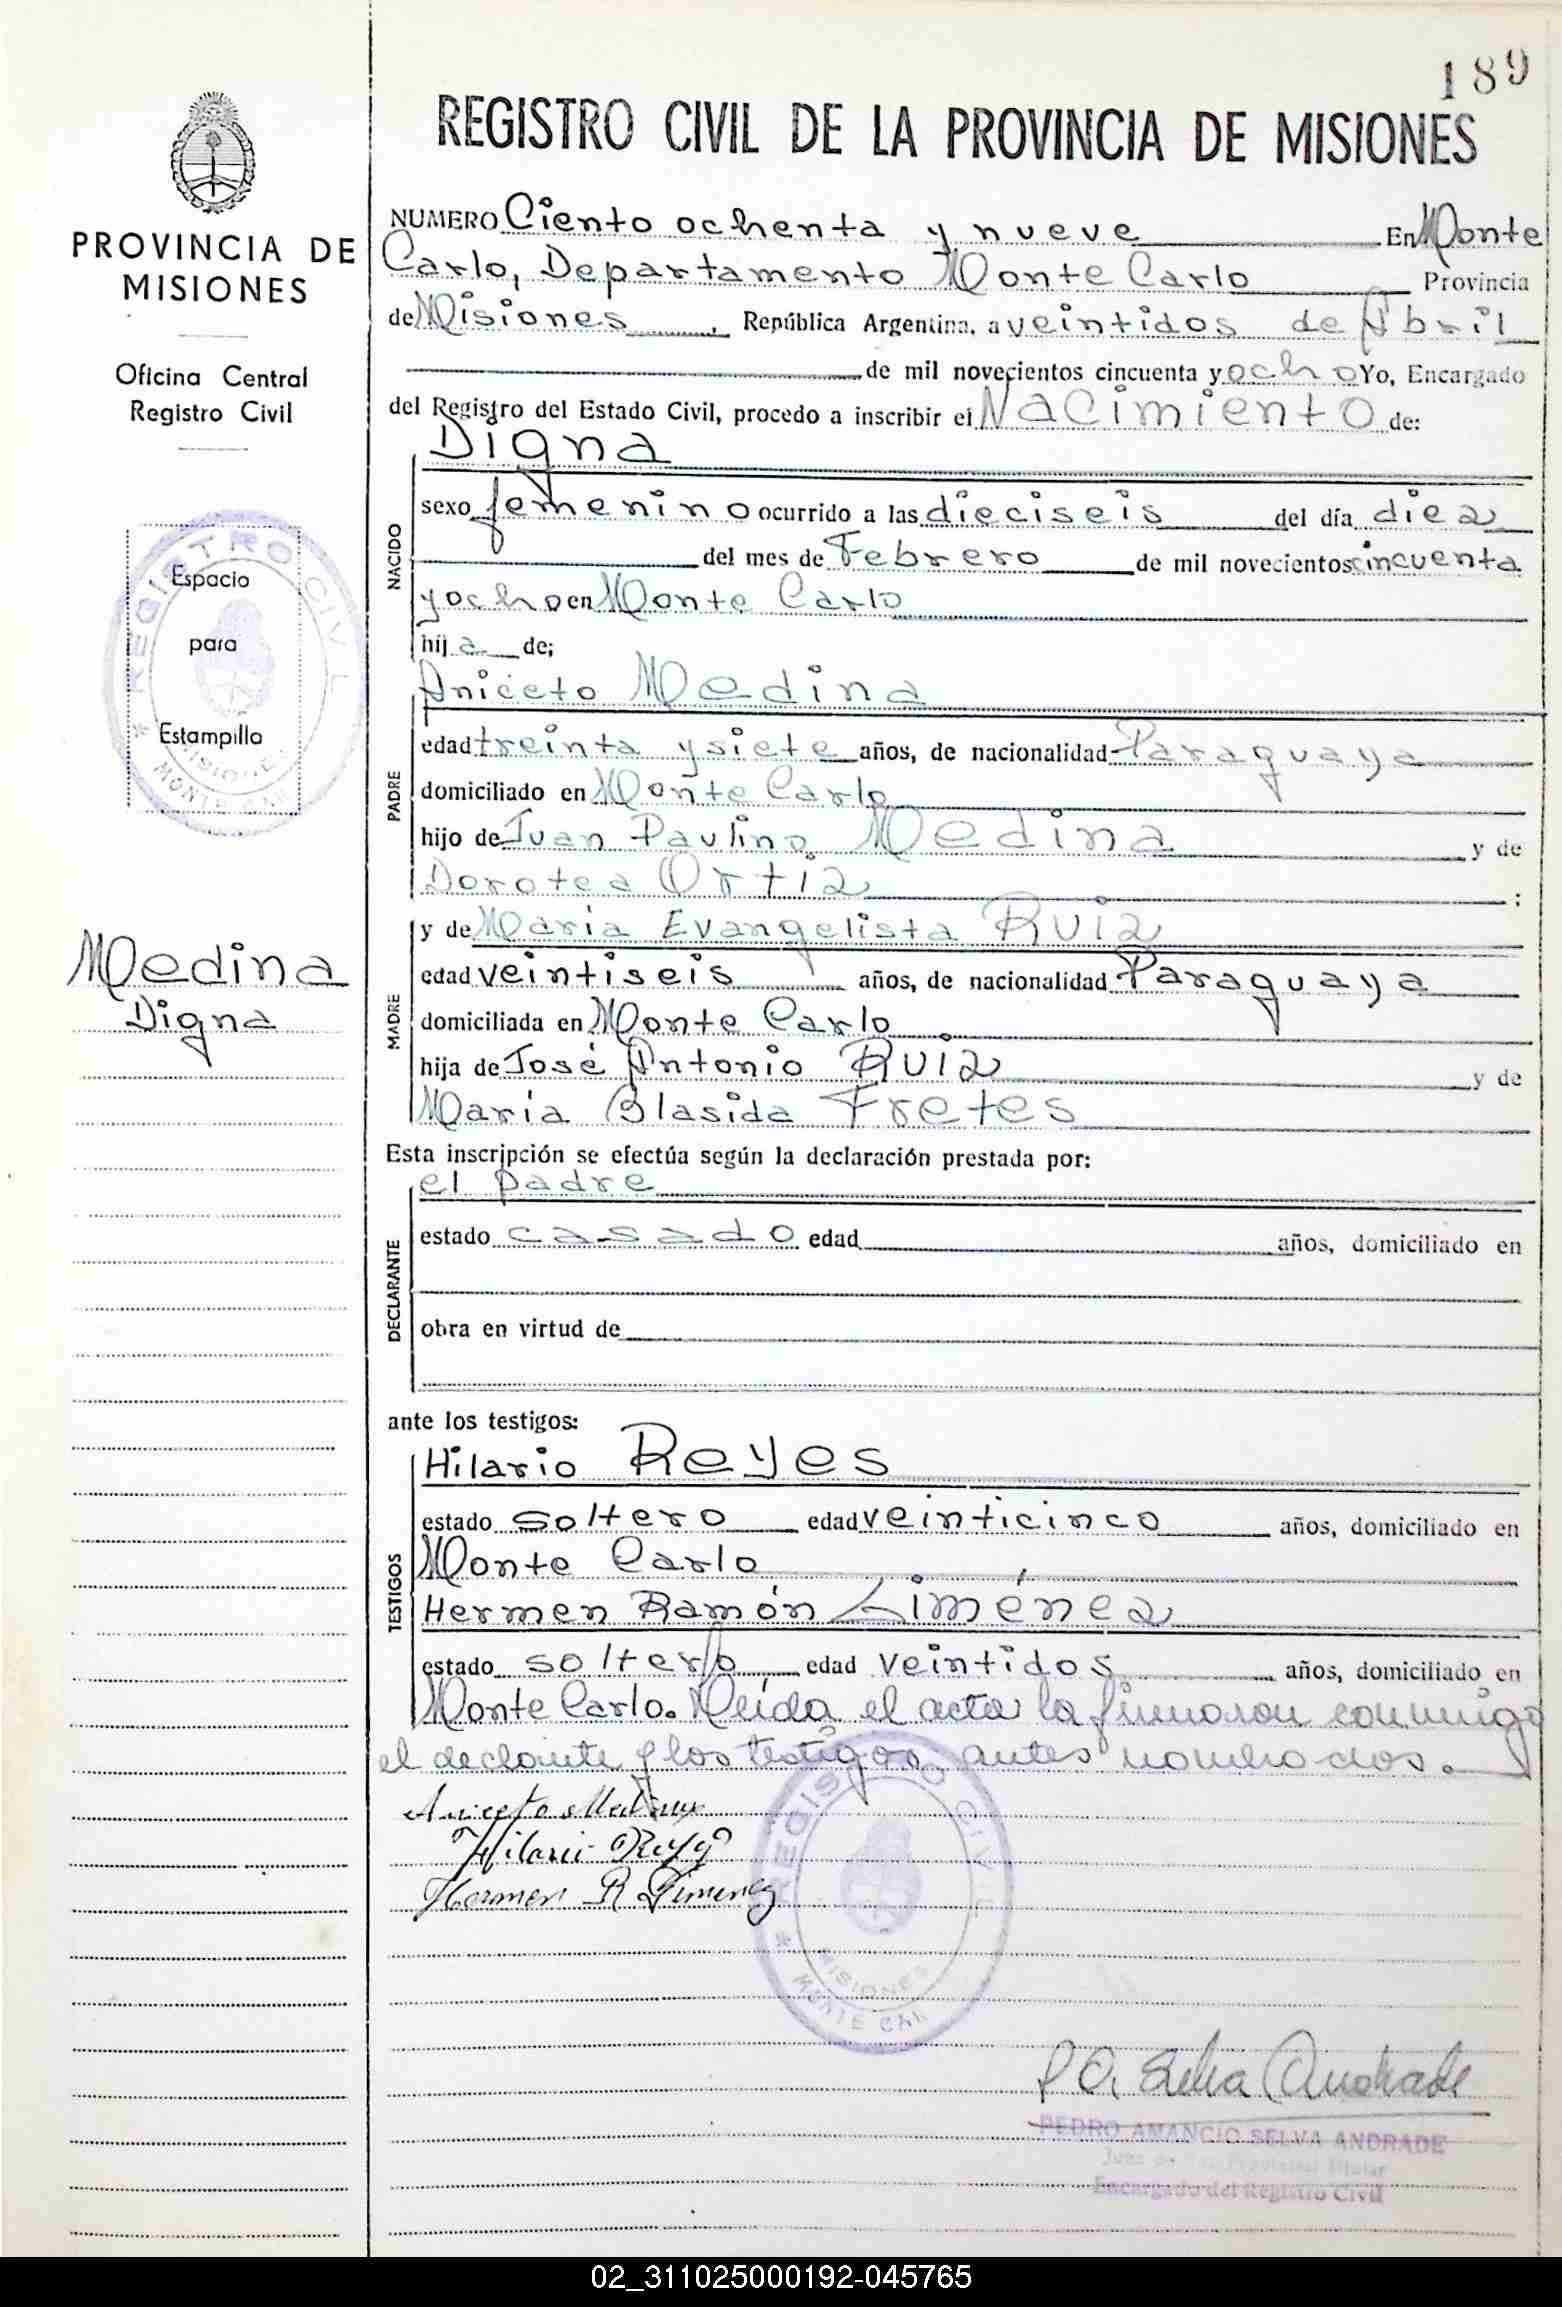 189
REGISTRO CIVIL DE LA PROVINCIA DE MISIONES
PROVINCIA DE
MISIONES
Oficina Central
Registro Civil
REGISTRO CIVIL
Espacio
para
Estampilla
MISIONES
Medina
Digna
NUMERO Ciento ochenta y nueve En Monte
Carlo, Departamento Monte Carlo Provincia
de Misiones, República Argentina, a veintidos de Abril
de mil novecientos cincuenta y ocho Yo, Encargado
del Registro del Estado Civil, procedo a inscribir el Nacimiento de:
NACIDO
Digna
sexo femenino ocurrido a las dieciseis del día diez
del mes de Febrero de mil novecientos cincuenta
y ocho en Monte Carlo
hija de;
PADRE
Aniceto Medina
edad treinta y siete años, de nacionalidad Paraguaya
domiciliado en Monte Carlo
hijo de Juan Paulino Medina y de
Dorotea Ortiz ;
MADRE
y de María Evangelista Ruiz
edad veintiseis años, de nacionalidad Paraguaya
domiciliada en Monte Carlo
hija de José Antonio Ruiz y de
María Blasida Fretes
Esta inscripción se efectúa según la declaración prestada por:
DECLARANTE
el padre
estado casado edad años, domiciliado en
obra en virtud de
ante los testigos:
TESTIGOS
Hilario Reyes
estado soltero edad veinticinco años, domiciliado en
Monte Carlo
Hermen Ramón Giménez
estado soltero edad veintidos años, domiciliado en
Monte Carlo. Leida el acta la firmaron conmigo
el declarante y los testigos antes nombrados.
Aniceto Medina
Hilario Reyes
Hermen R Gimenez
REGISTRO CIVIL
MISIONES
MONTE CAR
P A. Selva Andrade
PEDRO AMANCIO SELVA ANDRADE
Juez de Paz Titular
Encargado del Registro Civil
02_311025000192-045765